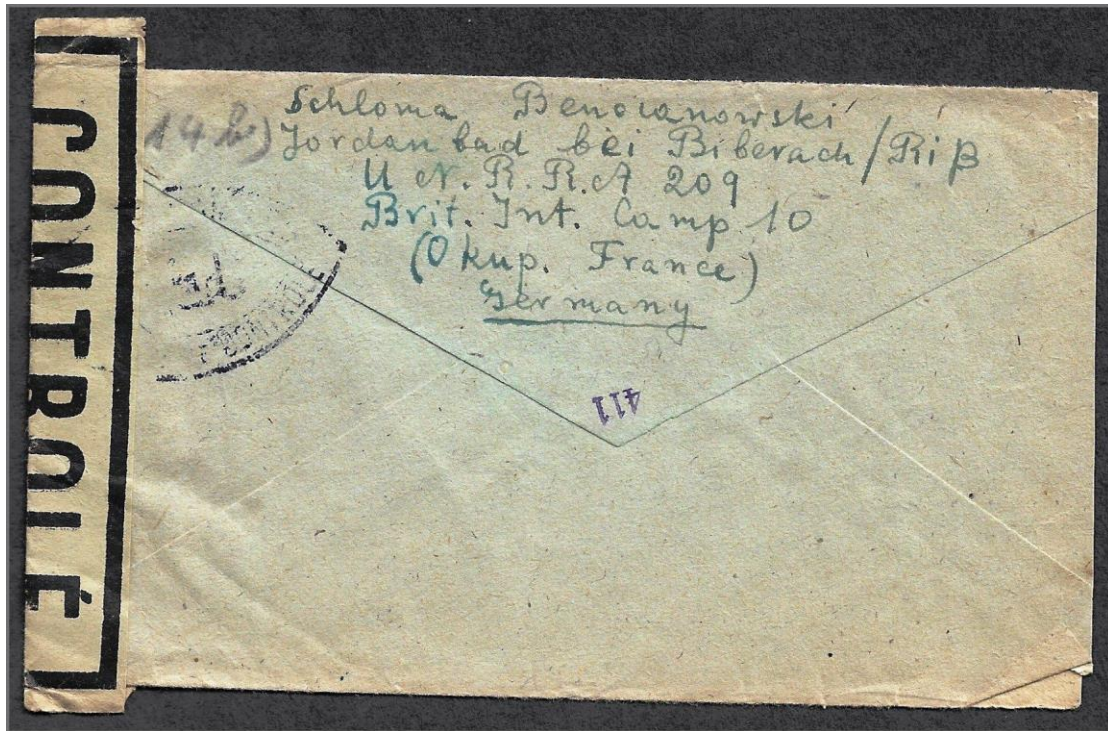 CONTROLÉ
14b)
Schloma Benocianowski
Jordanbad bei Biberach/Riß
U.N.R.R.A 209
Brit. Int. Camp 10
(Okup. France)
Germany
CONTROLE
411